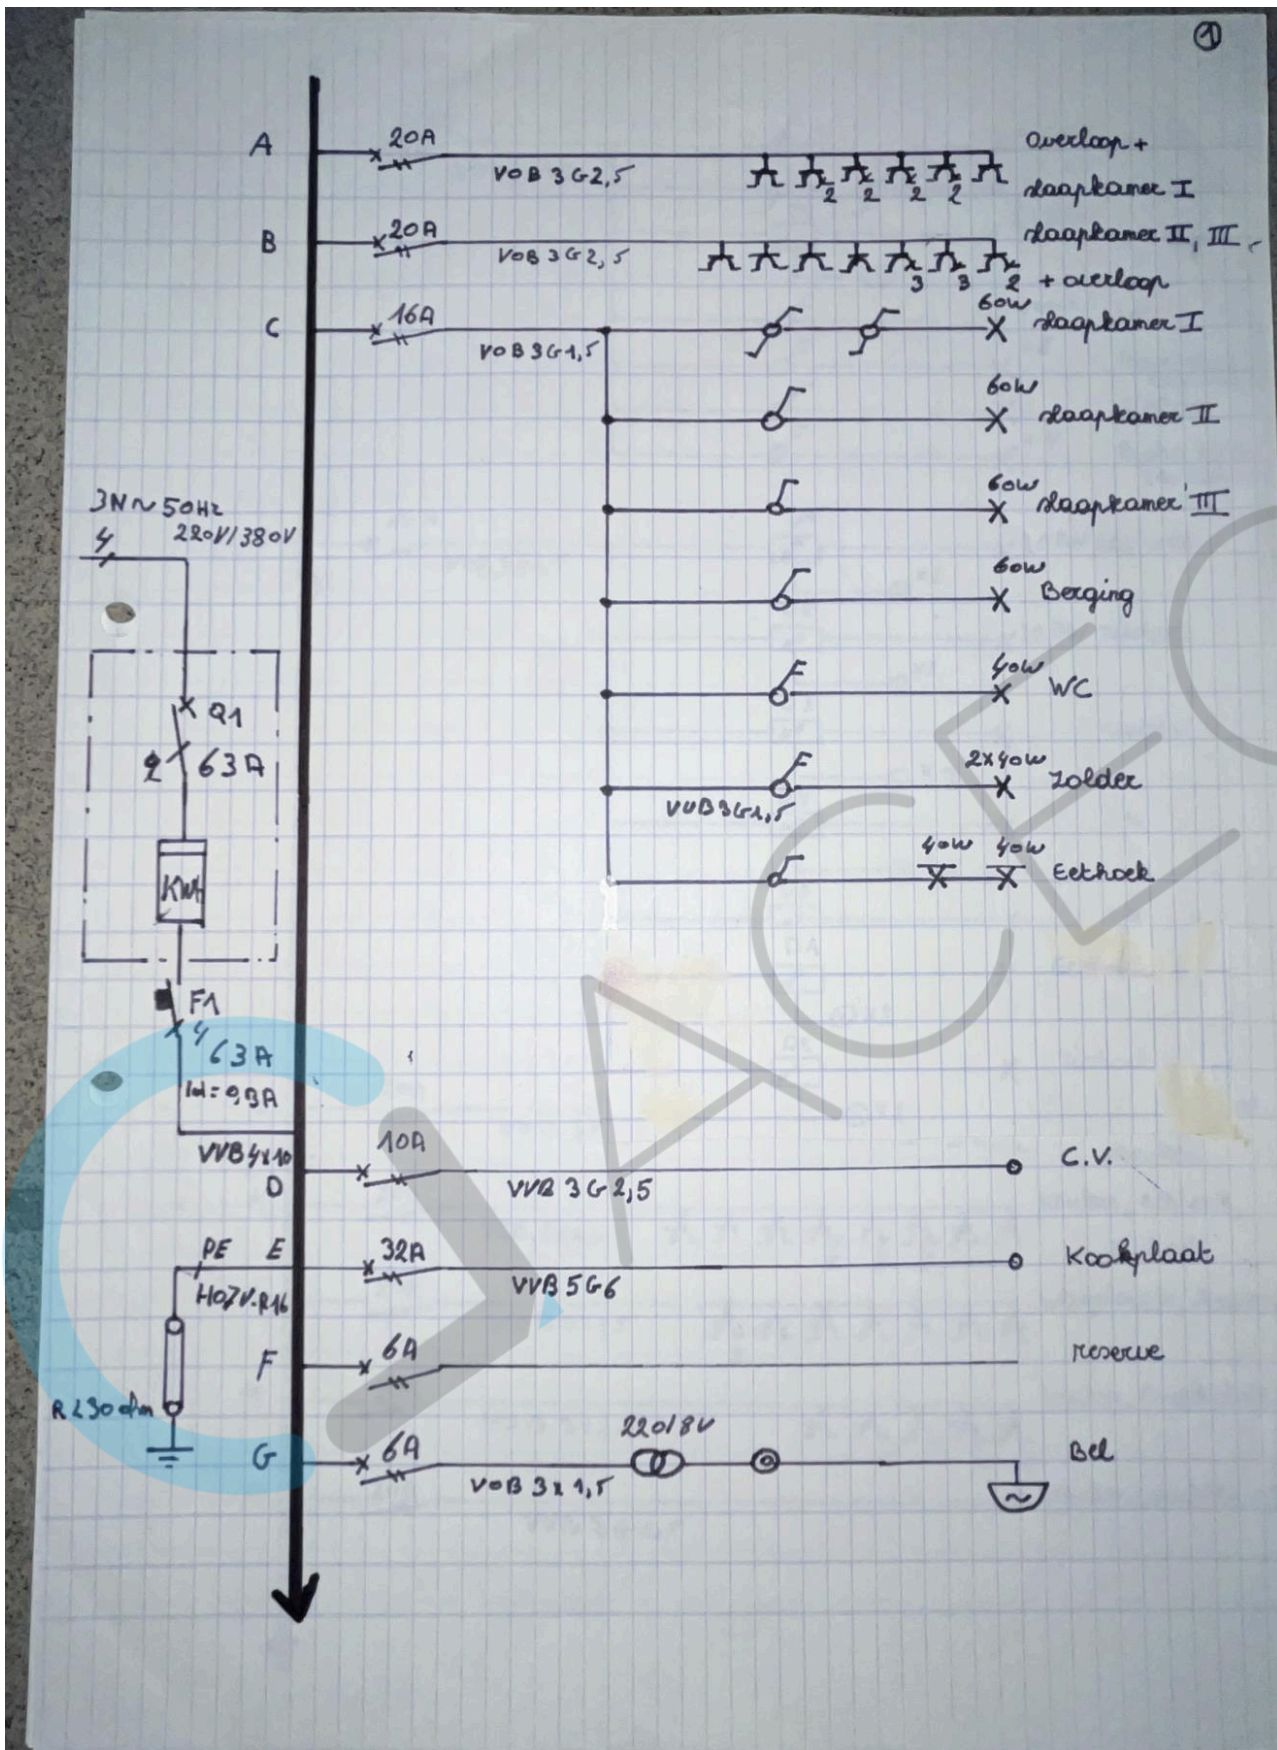 1
A
20A
VOB 3G2,5
2 2 2 2
Overloop +
slaapkamer I
B
20A
VOB 3G2,5
3 3 2
slaapkamer II, III,
+ overloop
C
16A
VOB 3G1,5
60W
slaapkamer I
60W
slaapkamer II
3N~50Hz
220V/380V
4
60W
slaapkamer III
60W
Berging
40W
WC
Q1
2
63A
VVB3G1,5
2x40W
Zolder
40W
40W
Eethoek
KWh
F1
4
63A
Id=0,3A
VVB 4x10
D
10A
VVB 3G2,5
C.V.
PE
H07V-R16
E
32A
VVB 5G6
Kookplaat
F
6A
reserve
R<30 ohm
G
6A
VOB 3x1,5
220/8V
Bel
~
ACEG